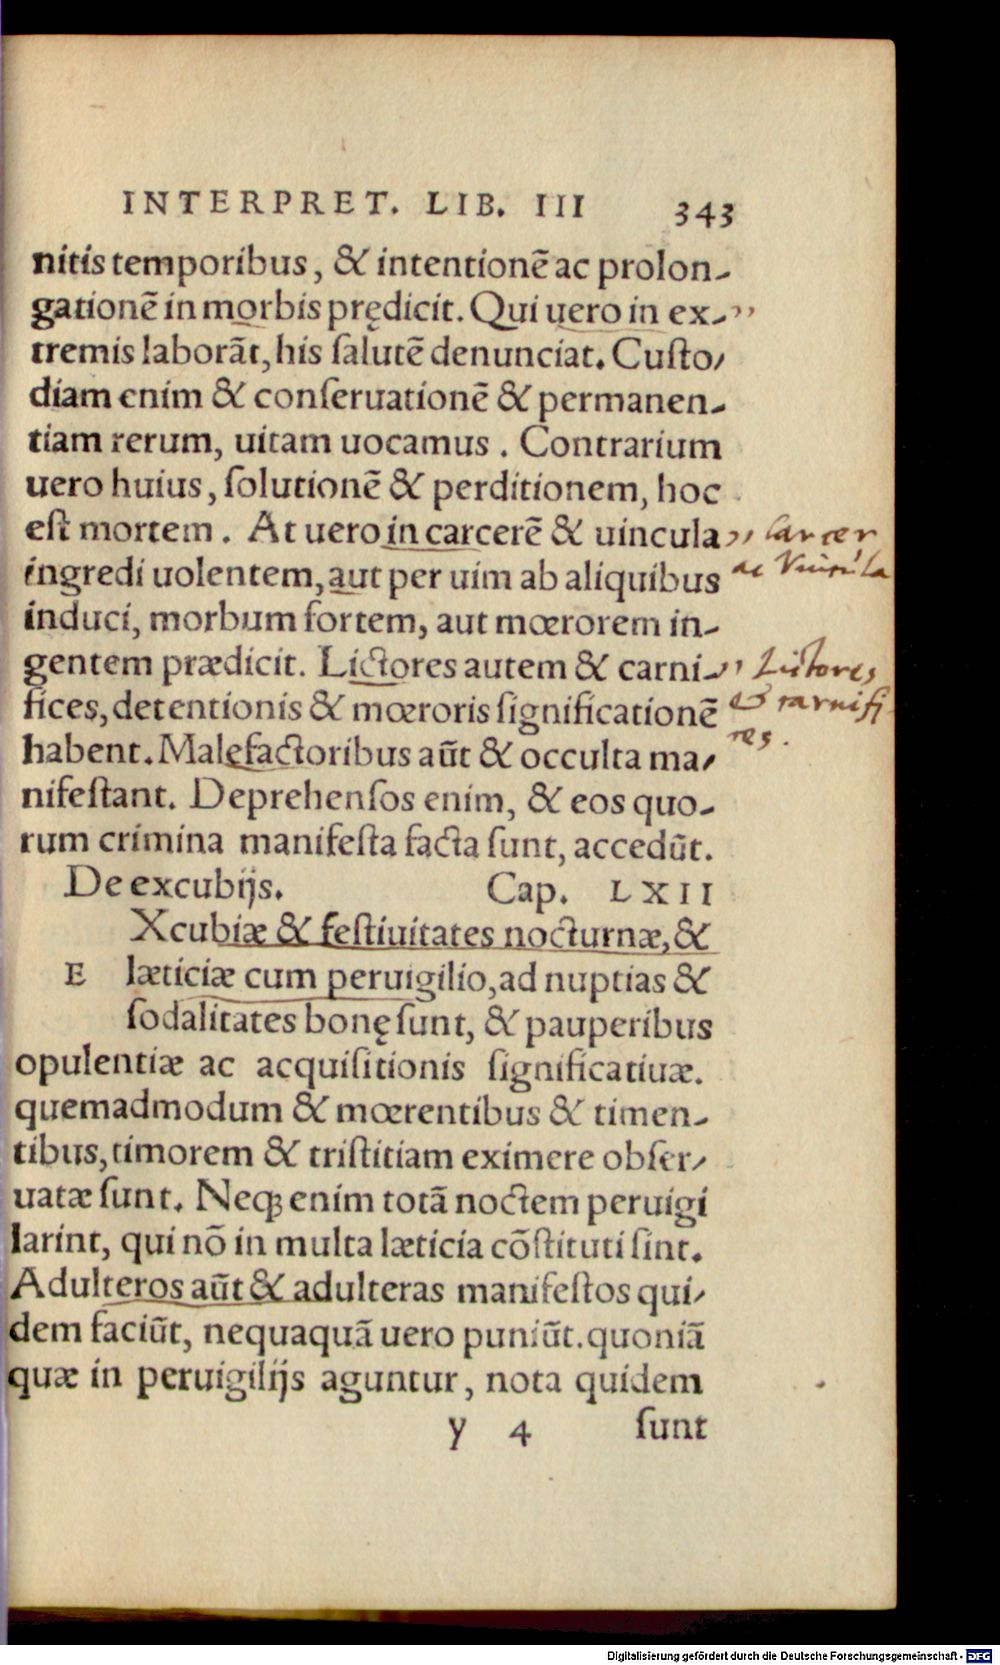 INTERPRET. LIB. III 343
nitis temporibus, & intentionē ac prolon-
gationē in morbis prędicit. Qui uero in ex- ,,
tremis laborāt, his ſalutē denunciat. Cuſto-
diam enim & conſeruationē & permanen-
tiam rerum, uitam uocamus. Contrarium
uero huius, ſolutionē & perditionem, hoc
eſt mortem. At uero in carcerē & uincula ,, Carcer
ingredi uolentem, aut per uim ab aliquibus ac Vincula
induci, morbum fortem, aut mœrorem in-
gentem prædicit. Lictores autem & carni- ,, Lictores
fices, detentionis & mœroris ſignificationē & carnifi
habent. Malefactoribus aūt & occulta ma- ces.
nifeſtant. Deprehenſos enim, & eos quo-
rum crimina manifeſta facta ſunt, accedūt.
De excubijs. Cap. LXII
Xcubiæ & feſtiuitates nocturnæ, &
E læticiæ cum peruigilio, ad nuptias &
ſodalitates bonę ſunt, & pauperibus
opulentiæ ac acquiſitionis ſignificatiuæ.
quemadmodum & mœrentibus & timen-
tibus, timorem & triſtitiam eximere obſer-
uatæ ſunt. Neq; enim totā noctem peruigi
larint, qui nō in multa læticia cōſtituti ſint.
Adulteros aūt & adulteras manifeſtos qui-
dem faciūt, nequaquā uero puniūt. quoniā
quæ in peruigilijs aguntur, nota quidem
y 4 ſunt
Digitalisierung gefördert durch die Deutsche Forschungsgemeinschaft - DFG